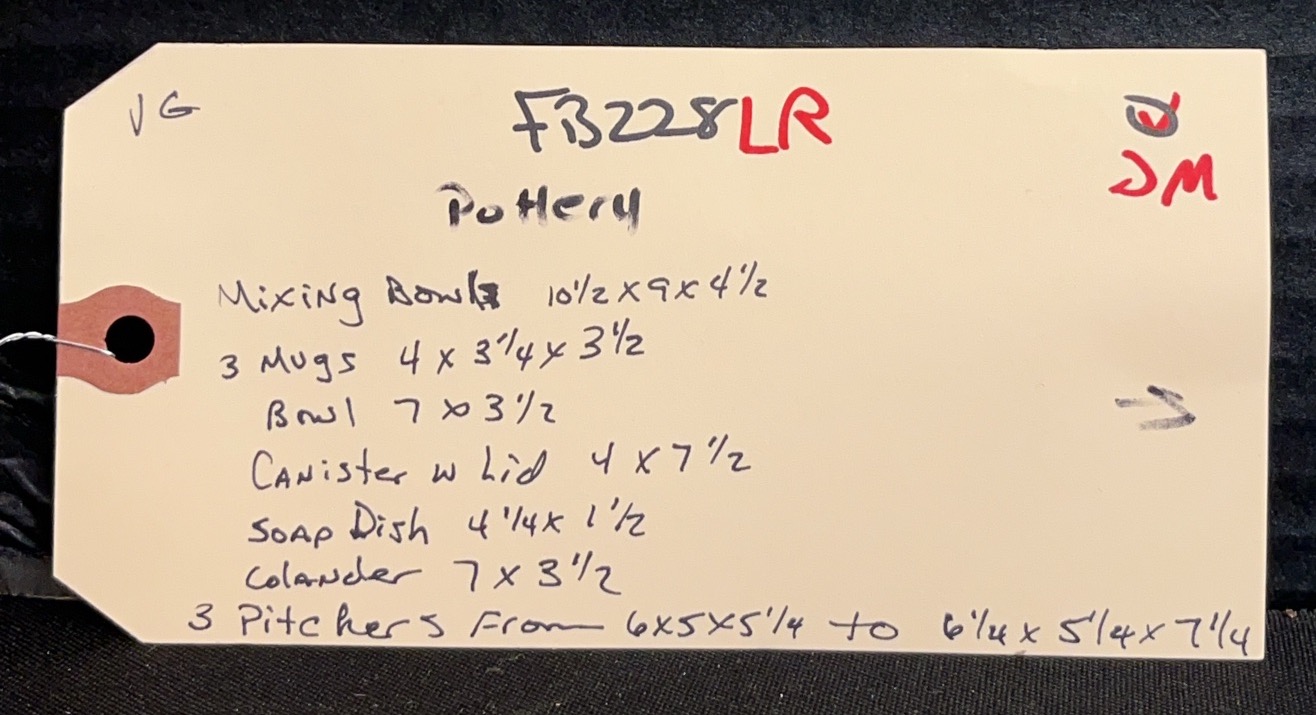 VG
FB228LR
DM
Pottery
Mixing Bowl 10 1/2 x 9 x 4 1/2
3 Mugs 4 x 3 1/4 x 3 1/2
Bowl 7 x 3 1/2
Canister w Lid 4 x 7 1/2
Soap Dish 4 1/4 x 1 1/2
Colander 7 x 3 1/2
3 Pitchers From 6x5x5 1/4 to 6 1/4 x 5 1/4 x 7 1/4